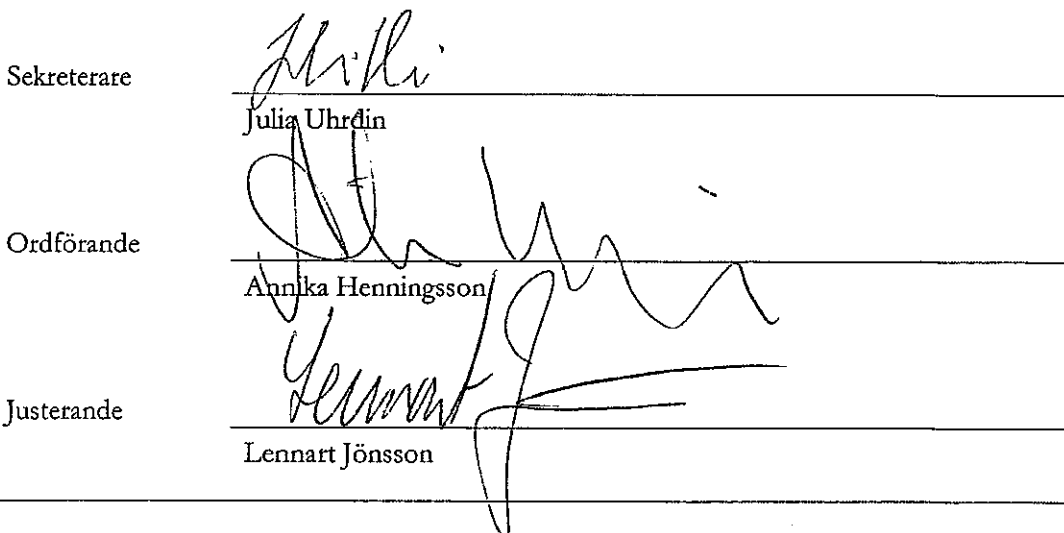 Sekreterare
Julia Uhrdin
Ordförande
Annika Henningsson
Lennart
Justerande
Lennart Jönsson